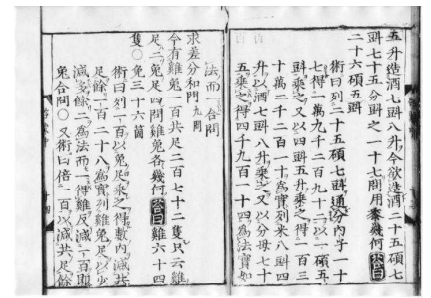 五升造酒七㪷八升今欲造酒二十五碩七
㪷七十五分㪷之一十七問用麥幾何答曰
二十六碩五㪷
術曰列二十五碩七㪷通分內子一十
七得一萬九千二百九十二以一碩五
㪷乘之又以四㪷五升乘之得一百三
十萬二千二百一十爲實列米八㪷四
升以酒七㪷八升乘之又以分母七十
五乘之得四千九百一十四爲法實如
法而一合問
求差分和門九問
今有雞兎一百共足二百七十二隻只云雞
足二兎足四問雞兎各幾何答曰雞六十四
隻〇兎三十六箇
術曰列一百以兎足乘之得數內減共
足餘一百二十八爲實列雞兎足以少
減多餘二爲法而一得雞反減一百即
兎合問〇又術曰倍一百以減共足餘